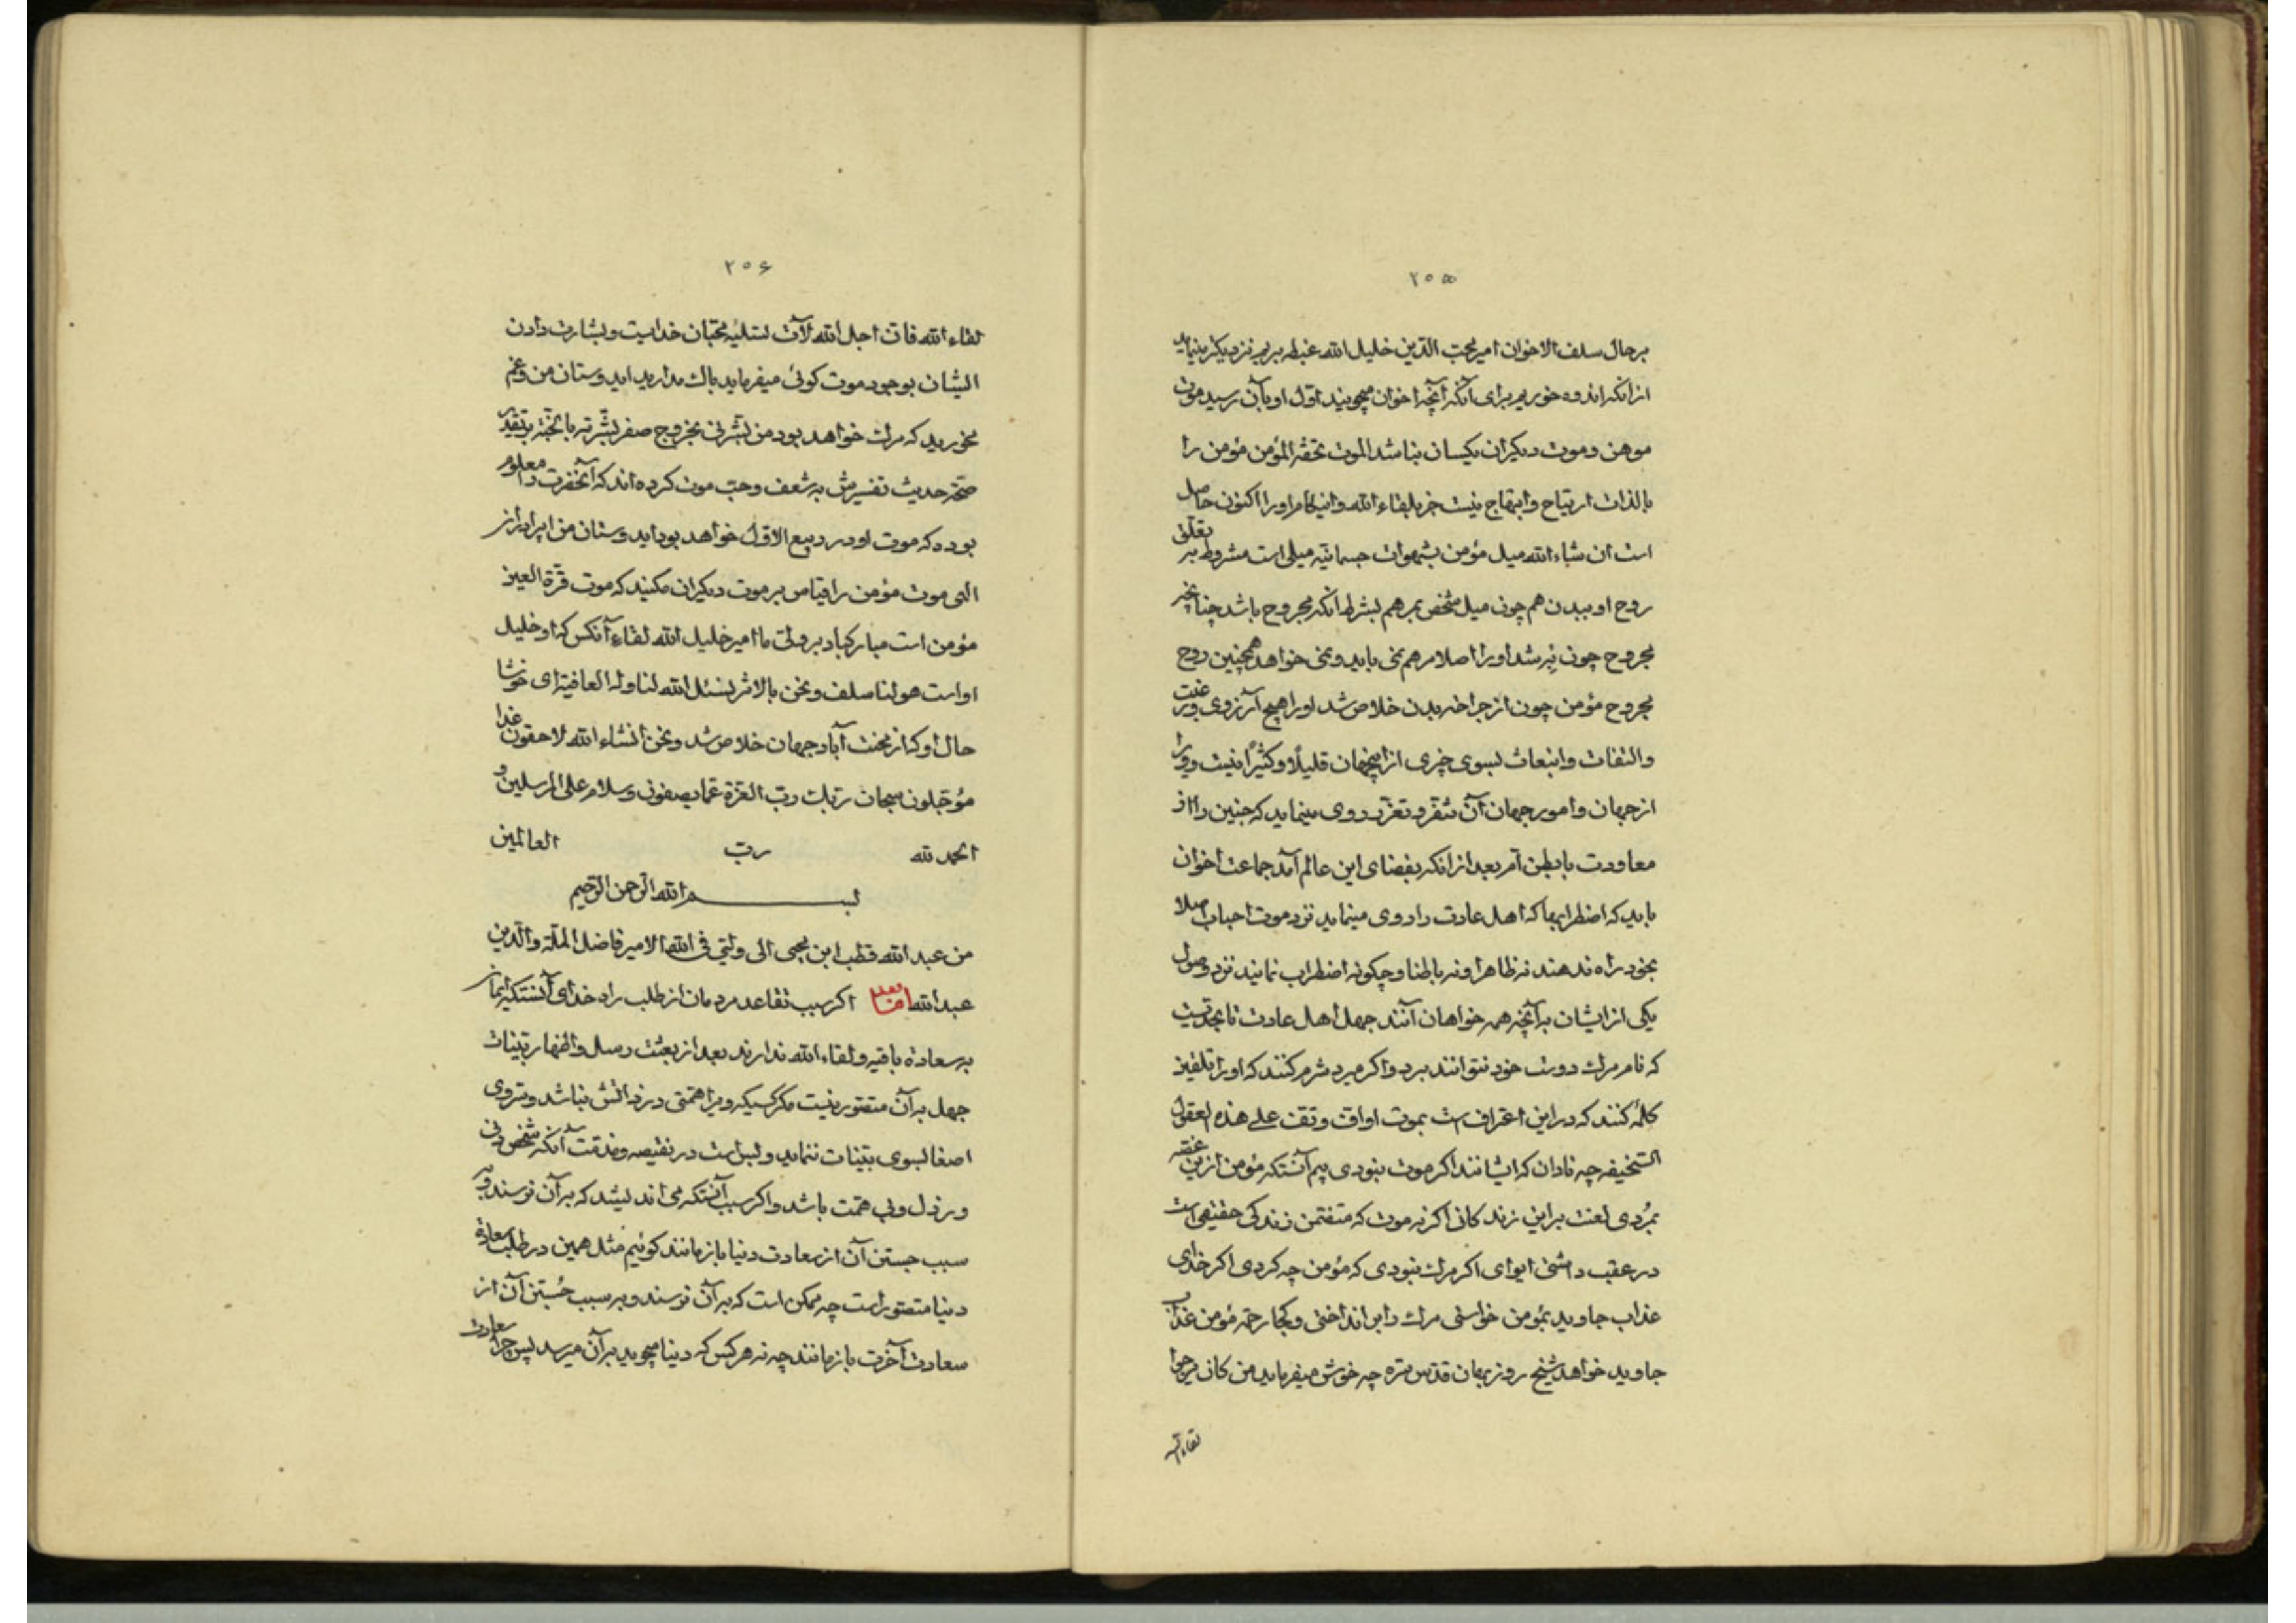 ۲۵۵
بر حال سلف الاخوان امیر محب الدین خلیل الله غبطه بریم نزدیکتر مینماید
از آنکه اندوه خوریم برای آنکه آنچه اخوان میجویند اول او بآن رسید موت
موهن و موت دیگران یکسان نباشد الموت تحفة المؤمن مؤمن را
بالذات ارتیاح و ابتهاج نیست جز بلقاء الله و اینکام او را اکنون حاصل
است ان شاء الله میل مؤمن بشهوات جسمانیه میلی است مشروط بر تعلق
روح او ببدن هم چون میل شخص بمرهم بشرط آنکه مجروح باشد چنانچه
مجروح چون به شد او را اصلا مرهم نمی باید و نمی خواهد همچنین روح
مجروح مؤمن چون از جراحة بدن خلاص شد او را هیچ آرزوی و رغبت
والتفات و انبعاث بسوی چیزی از اینجهان قلیلًا و کثیرًا نیست و ویرا
از جهان و امور جهان آن تنفر و تعزز روی مینماید که جنین را از
معاودت با بطن ام بعد از آنکه بفضای این عالم آمد جماعت اخوان
باید که اضطرابها که اهل عادت را روی مینماید نزد موت احباب اصلا
بخود راه ندهند نه ظاهرا و نه باطنا و چگونه اضطراب نمایند نزد وصول
یکی از ایشان بر آنچه همه خواهان آنند جهل اهل عادت تا بحدیست
که نام مرك دوست خود نتوانند برد و اکر میرد شرم کنند که او را تلقین
کلمه کنند که در این اعتراف است بموت او اف و تف علی هذه العقول
السخیفه چه نادان که ایشانند اکر موت نبودی بیم آنستکه مؤمن از این غصه
بمُردی لعنت بر این زندکانی اکر نه موت که متضمن زندکی حقیقی است
در عقب داشتی ایوای اکر مرك نبودی که مؤمن چه کردی اکر خدای
عذاب جاوید بمؤمن خواستی مرك را بر انداختی و کجا رحمة مؤمن عذاب
جاوید خواهد شیخ روزبهان قدس سره چه خوش میفرماید من کان یرجوا
لقاء الله
۲۵۶
لقاء الله فان اجل الله لآت تسلیه محبان خداست و بشارت دادن
ایشان بوجود موت کوئی میفرماید باك مدارید ای دوستان من و غم
مخورید که مرك خواهد بود من بشرنی بخروج صفر بشرته بالجنة بتقدیر
صحة حدیث تفسیرش به شعف و حب موت کرده اند که آنحضرت را معلوم
بود که موت او در ربیع الاول خواهد بود اید دوستان من
الهی موت مؤمن را قیاس بر موت دیکران مکنید که موت قرة العین
مؤمن است مبارکباد بر ولی ما امیر خلیل الله لقاء آنکس که او خلیل
اوست هو لنا سلف و نحن بالاثر نسئل الله لنا وله العافیة ای خوشا
حال او که از محنت آباد جهان خلاص شد و نحن انشاء الله لاحقون غدا
مؤجلون سبحان ربك رب العزة عما یصفون و سلام علی المرسلین و
الحمد لله رب العالمین
بسم الله الرحمن الرحیم
من عبد الله قطب ابن محیی الی ولیی فی الله الامیر فاضل الملة والدین
عبد الله اما بعد اکر سبب تقاعد مردمان از طلب راه خدای آنستکه ایمان
به سعادة باقیه و لقاء الله ندارند بعد از بعثت رسل و اظهار بینات
جهل بر آن متصور نیست مکر کسیکه ویرا همتی در خود آتش نباشد و بتروی
اصغا بسوی بینات ننماید و بس است در نقیصه و مذقت آنکه شخص دنی
و رذل و بی همت باشد و اکر سبب آنستکه می اندیشند که بر آن نرسند و به
سبب جستن آن از سعادت دنیا باز مانند کوئیم مثل همین در طلب سعادة
دنیا متصور است چه ممکن است که بر آن نرسند و بر سبب جُستن آن از
سعادت آخرت باز مانند چه نه هر کس که دنیا میجوید بر آن میرسد پس چرا سعادت